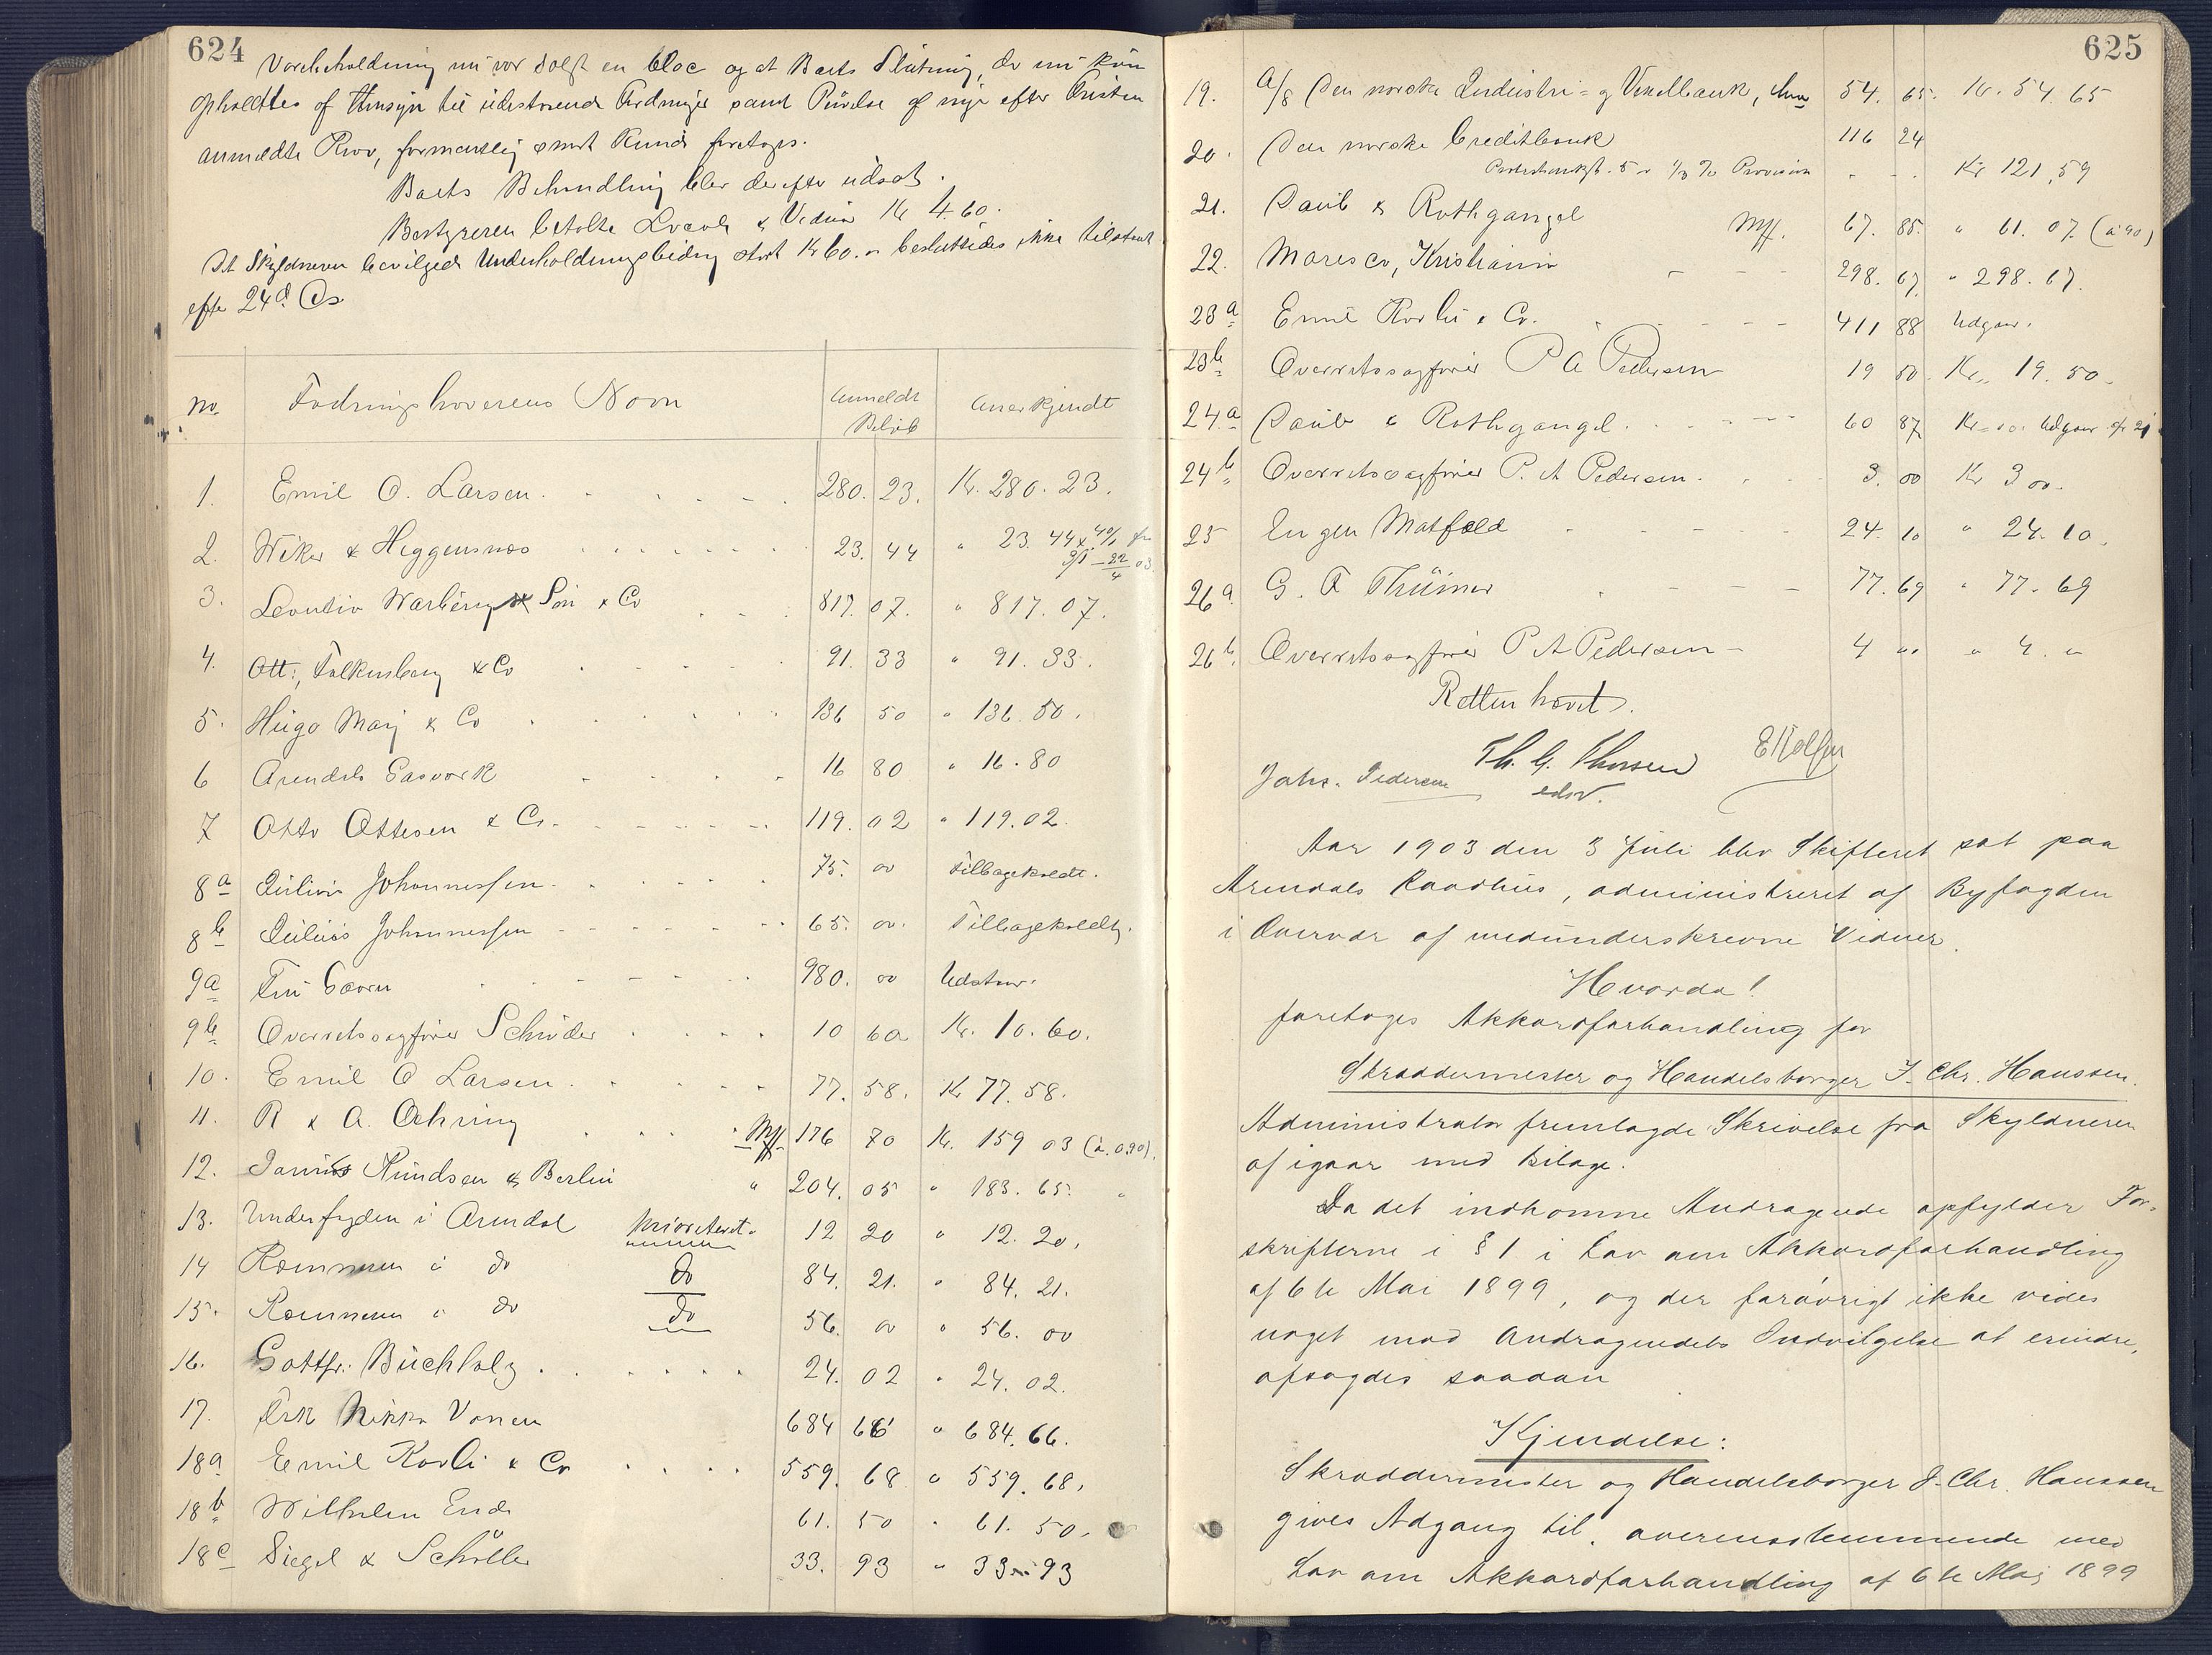 624
Varebeholdning nu var solgt en bloc og at Boets Slutning, der nu kun
opholdtes af Hensyn til udestaaende Fordringer samt Prøvelse af nye efter Fristen
anmeldte Krav, formentlig snart kunde foretages.
Boets Behandling blev derefter udsat.
Bestyreren betalte Lokale & Vidner Kr 4.60.
Det Skyldneren bevilgede Underholdningsbidrag stort Kr 60.00 besluttedes ikke tilstaaet
efter 24d. Ds
No. Fordringshaverens Navn Anmeldt Beløb Anerkjendt
1. Emil O. Larsen. 280. 23. Kr. 280. 23.
2. Wiker & Heggensnes 23. 44 " 23. 44 x 4% fra
3. Leontin Warburg Søn & Co 817. 07. " 817. 07.
4. Falkenberg & Co 91. 33 " 91. 33.
5. Hugo May & Co 136 50 " 136. 50.
6 Arendals Gasværk 16 80 " 16. 80
7 Otto Ottesen & Co. 119. 02 " 119. 02.
8a Julius Johannessen. 75. 00 Tilbagekaldt.
8b Julius Johannessen 65. 00. Tilbagekaldt.
9a 980. 00 Udstaar.
9b Overretssagfører Schrøder 10 60 Kr. 10. 60.
10. Emil O Larsen. 77. 58. Kr 77. 58.
11. R & A. Oehring Mk. 176 70 Kr. 159 03 (à. 0.90).
12. Knudsen & Berlin " 204. 05 " 183. 65. "
13. Underfogden i Arendal prioriteret. 12 20 " 12. 20.
14 Kæmneren i do do 84. 21. " 84. 21.
15. Kæmneren i do do 56. 00 " 56. 00
16. Gottfr. Buchholz. 24. 02 " 24. 02.
17. 684 66 " 684. 66.
18a Emil Korli & Co 559. 68 " 559. 68.
18b Wilhelm Ende 61. 50 " 61. 50.
18c Siegel & Schöller 33. 93 " 33 93
625
19. A/S Den norske Industri- og Vexelbank, 54. 65. Kr. 54. 65
20. Den norske Creditbank 116 24
5 1/3 % Provision Kr 121,59
21. Daub & Rothgangel Mk. 67. 85. " 61. 07. (à 90)
22. Mares co, Kristiania 298. 67. " 298. 67.
23a Emil Korli & Co. 411 88 Udgaar.
23b Overretssagfører P A Pedersen 19 50. Kr. 19. 50.
24a Daub & Rothgangel. 60 87 Kr Udgaar cfr 21
24b Overretssagfører P. A Pedersen. 3. 00 Kr 3 00.
25 Eugen Matfeld 24. 10 " 24. 10.
26a G. A Thümer 77. 69 " 77. 69
26b. Overretssagfører P A Pedersen 4 " " 4. "
Retten hævet.
Th. G. Thorsen
Johs. Pedersen edsv.
Aar 1903 den 3 Juli blev Skifteret sat paa
Arendals Raadhus, administreret af Byfogden
i Overvær af medunderskrevne Vidner.
Hvorda!
foretoges Akkordforhandling for
Skræddermester og Handelsborger J. Chr. Hanssen.
Administrator fremlagde Skrivelse fra Skyldneren
af igaar med Bilage.
Da det indkomne Andragende opfylder For-
skrifterne i § 1 i Lov om Akkordforhandling
af 6te Mai 1899, og der forøvrigt ikke vides
noget mod Andragendets Indvilgelse at erindre,
afsagdes saadan
Kjendelse:
Skræddermester og Handelsborger J. Chr. Hanssen
gives Adgang til, overensstemmende med
Lov om Akkordforhandling af 6te Mai 1899